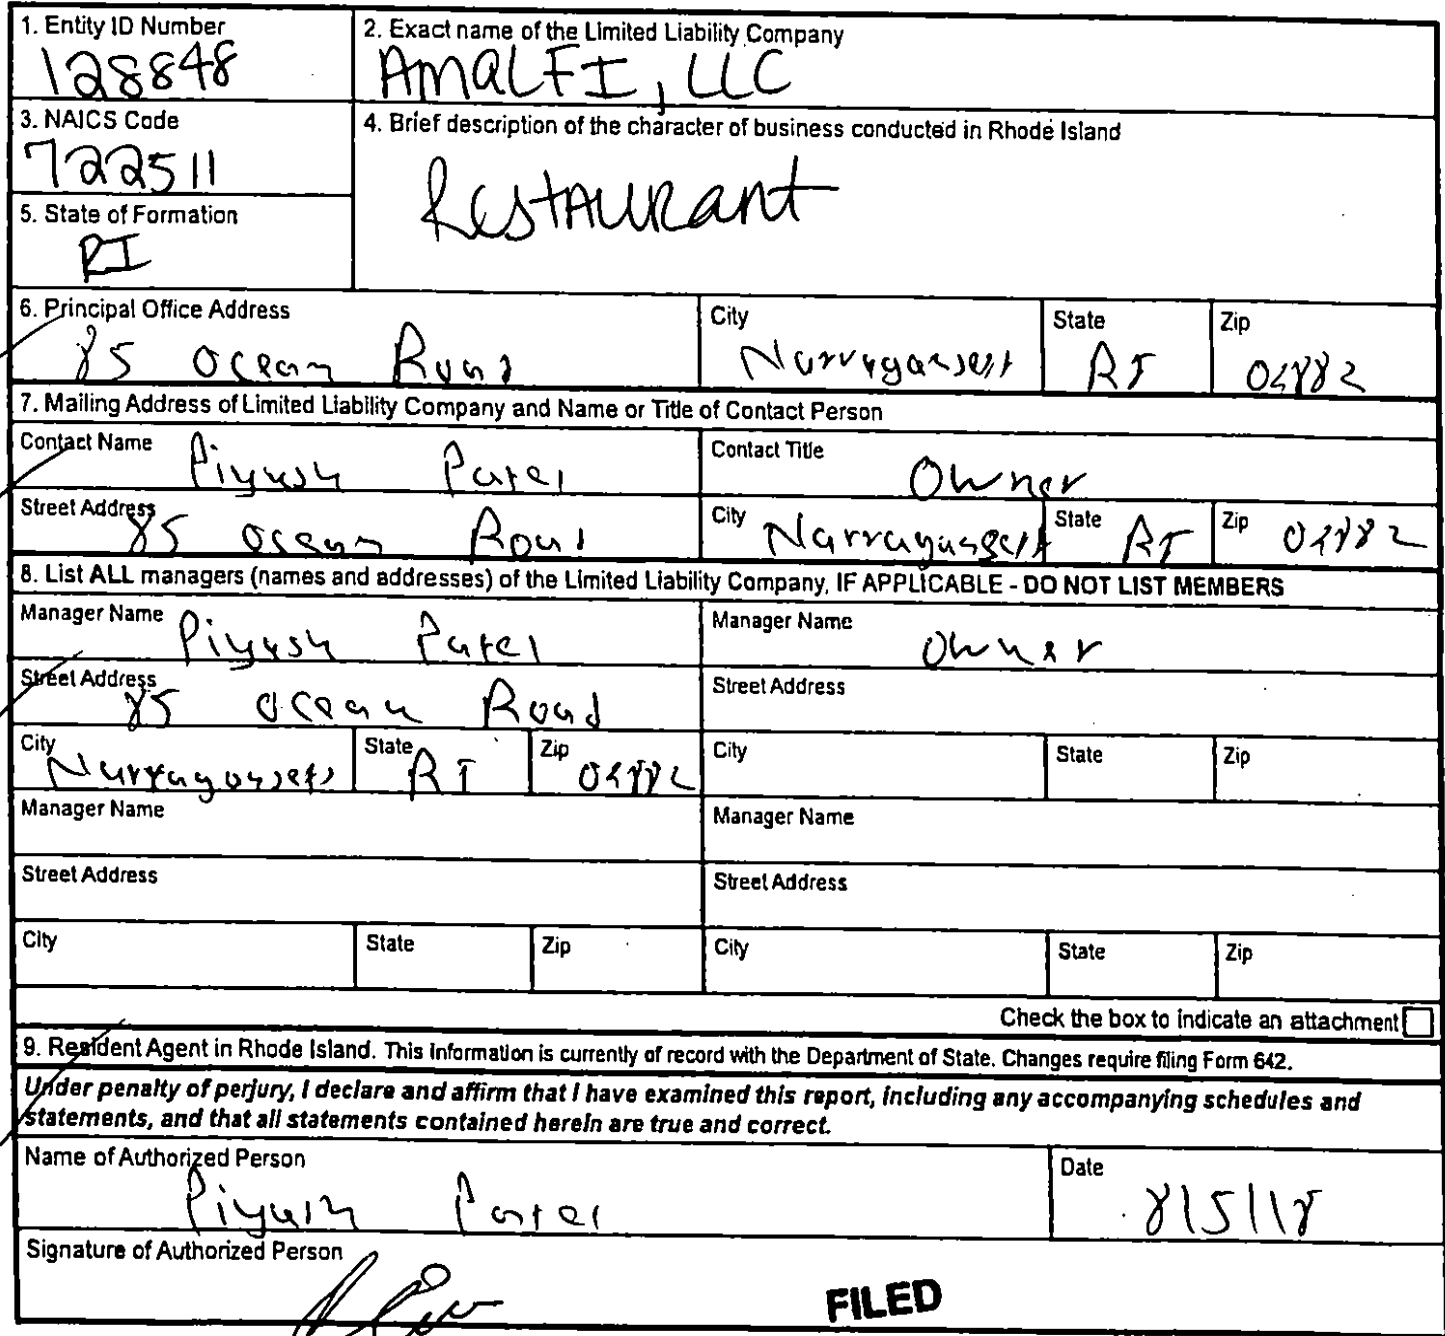 1. Entity ID Number
128848
2. Exact name of the Limited Liability Company
AMALFI, LLC
3. NAICS Code
722511
4. Brief description of the character of business conducted in Rhode Island
Restaurant
5. State of Formation
RI
6. Principal Office Address
85 Ocean Road
City
Narragansett
State
RI
Zip
02882
7. Mailing Address of Limited Liability Company and Name or Title of Contact Person
Contact Name
Piyush Patel
Contact Title
Owner
Street Address
85 Ocean Road
City
Narragansett
State
RI
Zip
02882
8. List ALL managers (names and addresses) of the Limited Liability Company, IF APPLICABLE - DO NOT LIST MEMBERS
Manager Name
Piyush Patel
Manager Name
Owner
Street Address
85 Ocean Road
Street Address
City
Narragansett
State
RI
Zip
02882
City
State
Zip
Manager Name
Manager Name
Street Address
Street Address
City
State
Zip
City
State
Zip
Check the box to indicate an attachment
9. Resident Agent in Rhode Island. This information is currently of record with the Department of State. Changes require filing Form 642.
Under penalty of perjury, I declare and affirm that I have examined this report, including any accompanying schedules and
statements, and that all statements contained herein are true and correct.
Name of Authorized Person
Piyush Patel
Date
8/5/18
Signature of Authorized Person
FILED